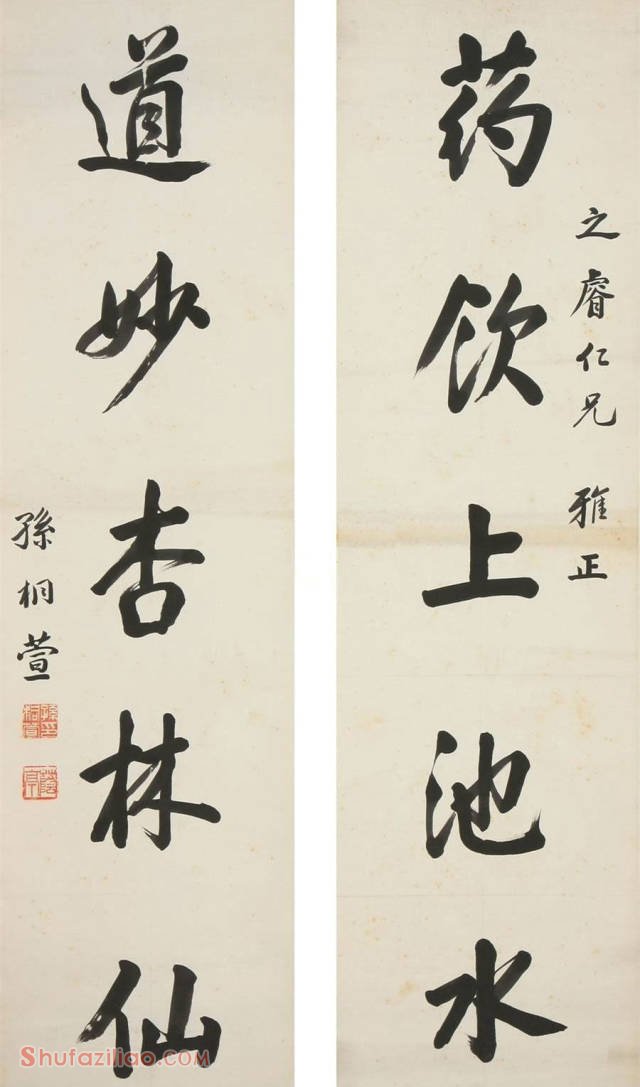 药饮上池水
之睿仁兄 雅正
道妙杏林仙
孫桐萱
Shufaziliao.COM